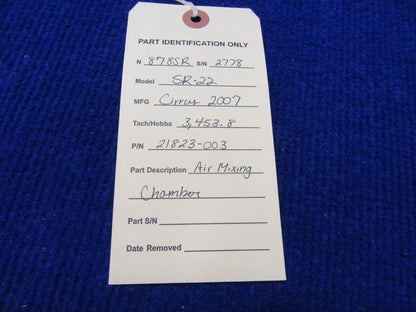 PART IDENTIFICATION ONLY
N 878SR S/N 2778
Model SR-22
MFG Cirrus 2007
Tach/Hobbs 3,453.8
P/N 21823-003
Part Description Air Mixing
Chamber
Part S/N
Date Removed